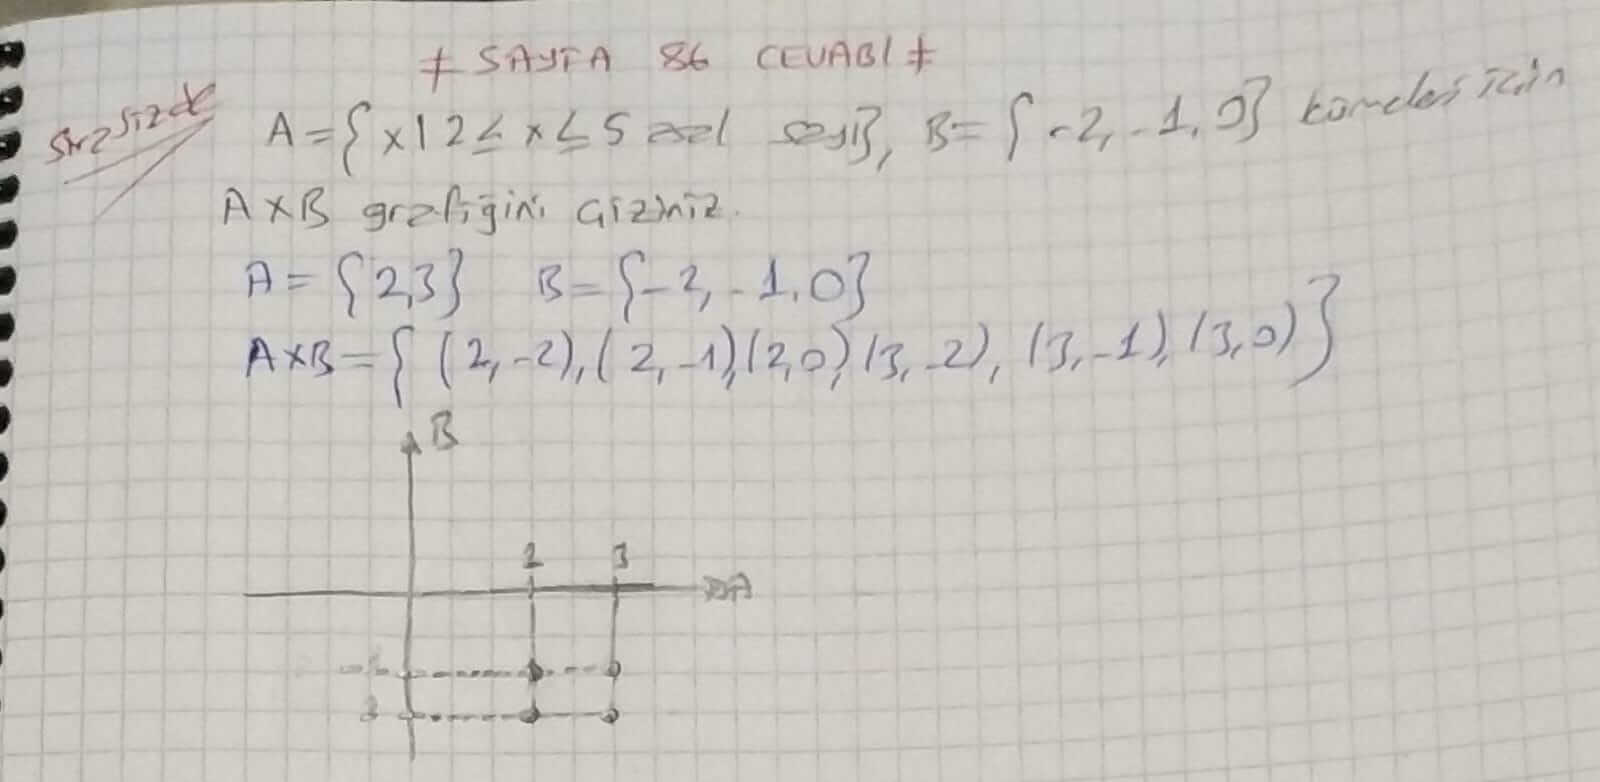 ≠ SAYFA 86 CEVABI ≠
Sıra sizde
A = { x | 2 ≤ x ≤ 5 asal sayı}, B = { -2, -1, 0} kümeleri için
A x B grafiğini çiziniz.
A = {2,3} B = {-2, -1, 0}
A x B = { (2, -2), (2, -1), (2,0), (3, -2), (3, -1), (3,0) }
B
2 3
A